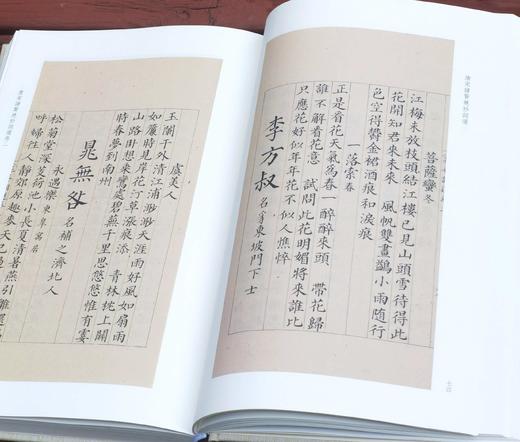 唐宋諸賢絕妙詞選
菩薩蠻冬
江梅未放枝頭結江樓已見山頭雪待得此
花開知君來未來 風帆雙畫鷁小雨隨行
色空得鬱金裙酒痕和淚痕
一落索春
正是看花天氣為春一醉醉來卻帶花歸
誰不解看花意 試問此花明媚將來誰比
只應花好似年年花不似人憔悴
李方叔 名廌東坡門下士
七四
虞美人
玉闌干外清江浦渺渺天涯雨好風如扇雨
如簾時見岸花汀草漲痕添 青林枕上關
山路臥想乘鸞處碧蕪千里思悠悠惟有霎
時春夢到南州
晁無咎 名補之濟北人
永遇樂 東皋寓居
松菊堂深芰荷池小長夏清暑燕引雛還
呼婦往人靜郊原趣麥天已過
唐宋諸賢絕妙詞選卷